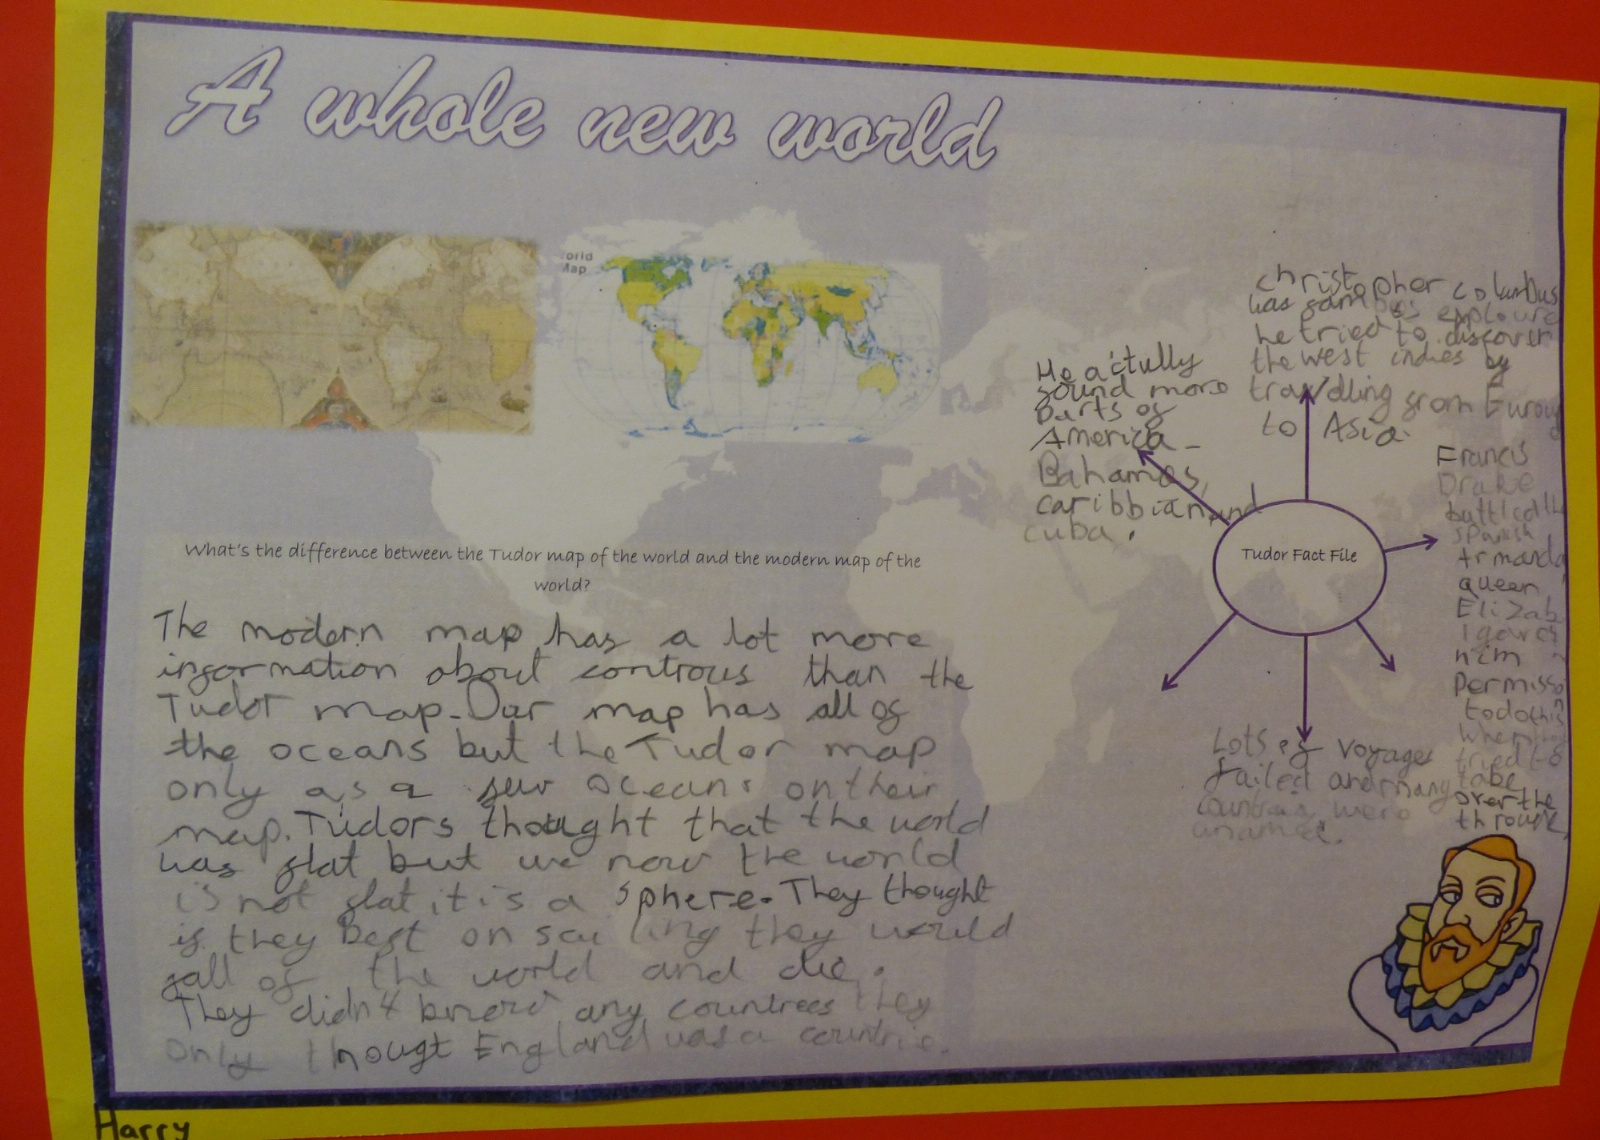 A whole new world
orld
Map
What's the difference between the Tudor map of the world and the modern map of the
world?
The modern map has a lot more
information about controus than the
Tudor map. Our map has all of
the oceans but the Tudor map
only as a few oceans on their
map. Tudors thought that the world
was flat but we now the world
is not flat, it is a sphere. They thought
if they best on sailing they would
fall of the world and die.
They didn't know any countrees they
only thougt England was a countrie.
He actully
found more
parts of
America -
Bahamas,
caribbian and
cuba.
christopher columbus
was famous exploure
he tried to discover
the west indies by
travelling from Europ
to Asia.
Tudor Fact File
Francis
Drake
battled th
spanish
Armarda
queen
Elizab
1 gave
him
Permisso
to do this
when
tried to
take
over the
throug
Lots of voyages
failed and many
countries were
unamed.
Harry